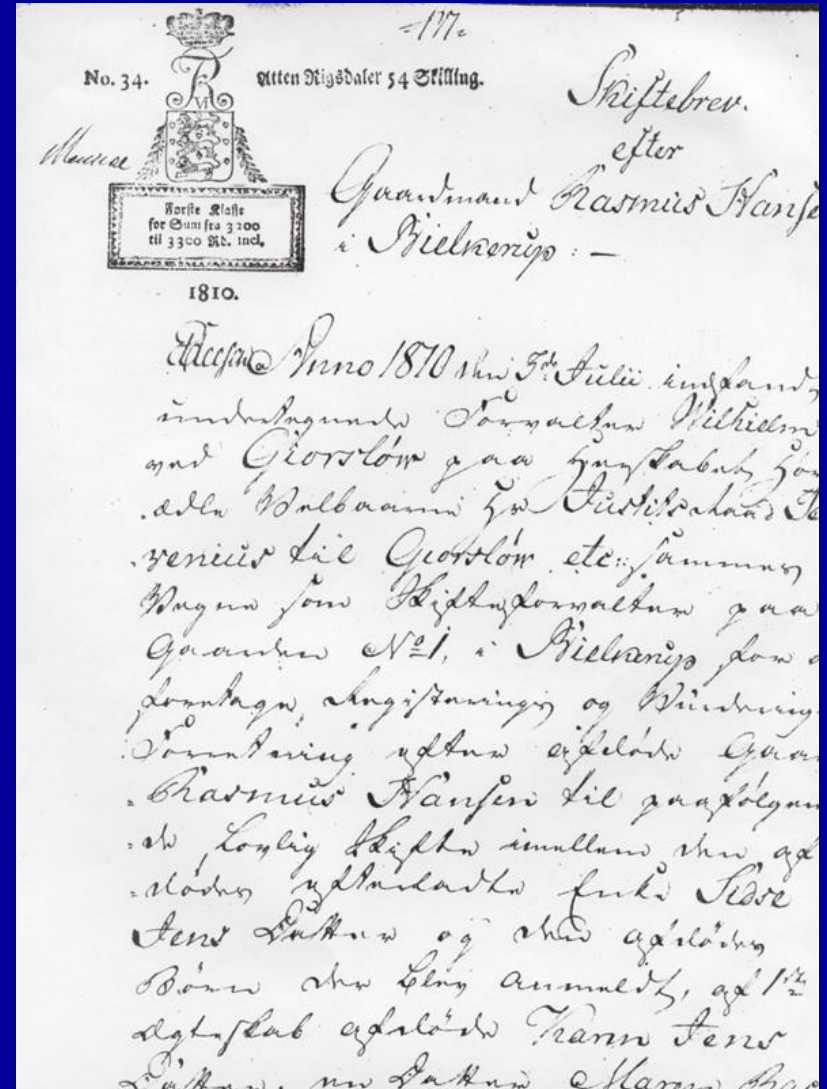 =177=
No. 34.
Atten Rigsdaler 54 Skilling.
Skiftebrev.
efter
Gaardmand Rasmus Hanse
i Bielkerup: —
Første Klasse
for Sum fra 3200
til 3300 Rd. incl.
1810.
Anno 1810 den 3de Julii indfandt
undertegnede Forvalter Wilhielm
ved Giorsløw paa Herskabet Høi
ædle Velbaarne Hr Justitsraad Te
venius til Giorsløw etc: sammes
Vegne som Skifteforvalter paa
Gaarden No 1, i Bielkerup for a
foretage Registerings og Vurderings
Forretning efter afdøde Gaa
Rasmus Hansen til paafølgen
de Lovlig Skifte imellem den af
dødes efterladte Enke Sidse
Jens Datter og den afdødes
Børn der blev anmeldt, af 1ste
Ægteskab afdøde Karen Jens
Datter, en Datter Maren